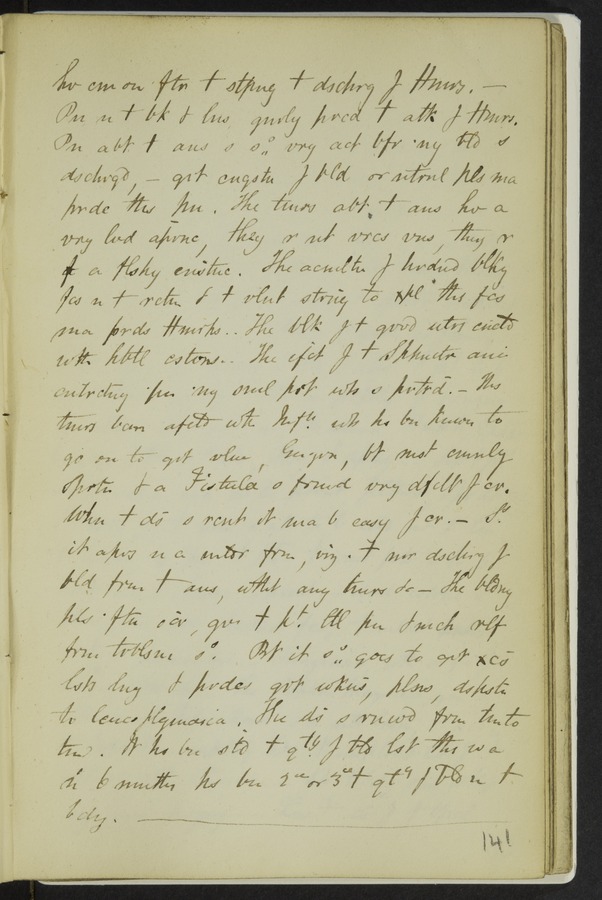 hv cm on ftr + stpng + dschrg J Hmrs. —
Pn n + bk & lns, gnrly prcd + attk J Hmrs.
Pn abt + ans s sº vry act bfr ny bld s
dschrgd, — grt cngstn J bld or ntrnl pls ma
prdc ths pn. The tmrs abt + ans hv a
vry lvd aprnc, they r nt vrcs vns, they r
J a flshy cnstnc. The acmltn J hrdnd blky
fcs n + rctm & + vlnt strng to xpl ths fcs
ma prds Hmrhs. . The blk J + grvd utrs
wth hbtl cstvns. . The efct J + Sphnctr ani
cntrctng pn ny smll prt wh s prtrd. — Ths
tmrs bcm afctd wth Infln wh hs bn knwn to
go on to grt vlnc, Gngrn, bt mst cmnly
& a Fistula s frmd vry dfclt J cr.
Whn + ds s rcnt it ma b easy J cr. —
it aprs n a mldr frm, viz. + mr dschrg J
bld frm + ans, wtht any tmrs &c — The bldng
pls ftn ocr, gvs + pt. ltl pn & mch rlf
frm trblsm sº. Bt it sº goes to grt xcs
lsts lng & prdcs grt wkns, plns, dspsa
to leucophlgmasia. The ds s rnwd frm tm to
tm. It hs bn std + qty J bld lst ths wa
n 6 mnths hs bn 2ce or 3ce + qty J bld n +
bdy. —
141